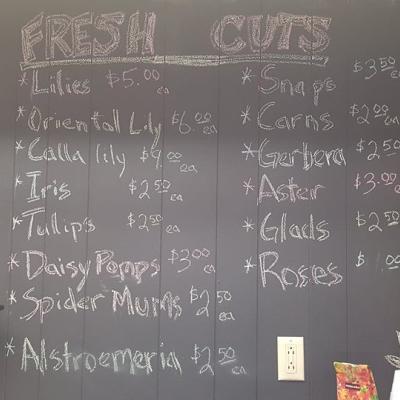 FRESH CUTS
*Lilies $5.00 ea
*Oriental Lily $6.00 ea
*Calla lily $9.00 ea
*Iris $2.50 ea
*Tulips $2.50 ea
*Daisy Pomps $3.00 ea
*Spider Mums $2.50 ea
*Alstroemeria $2.50 ea
*Snaps $3.50
*Carns $2.00 ea
*Gerbera $2.50
*Aster $3.00 ea
*Glads $2.50 ea
*Roses $ .00 ea